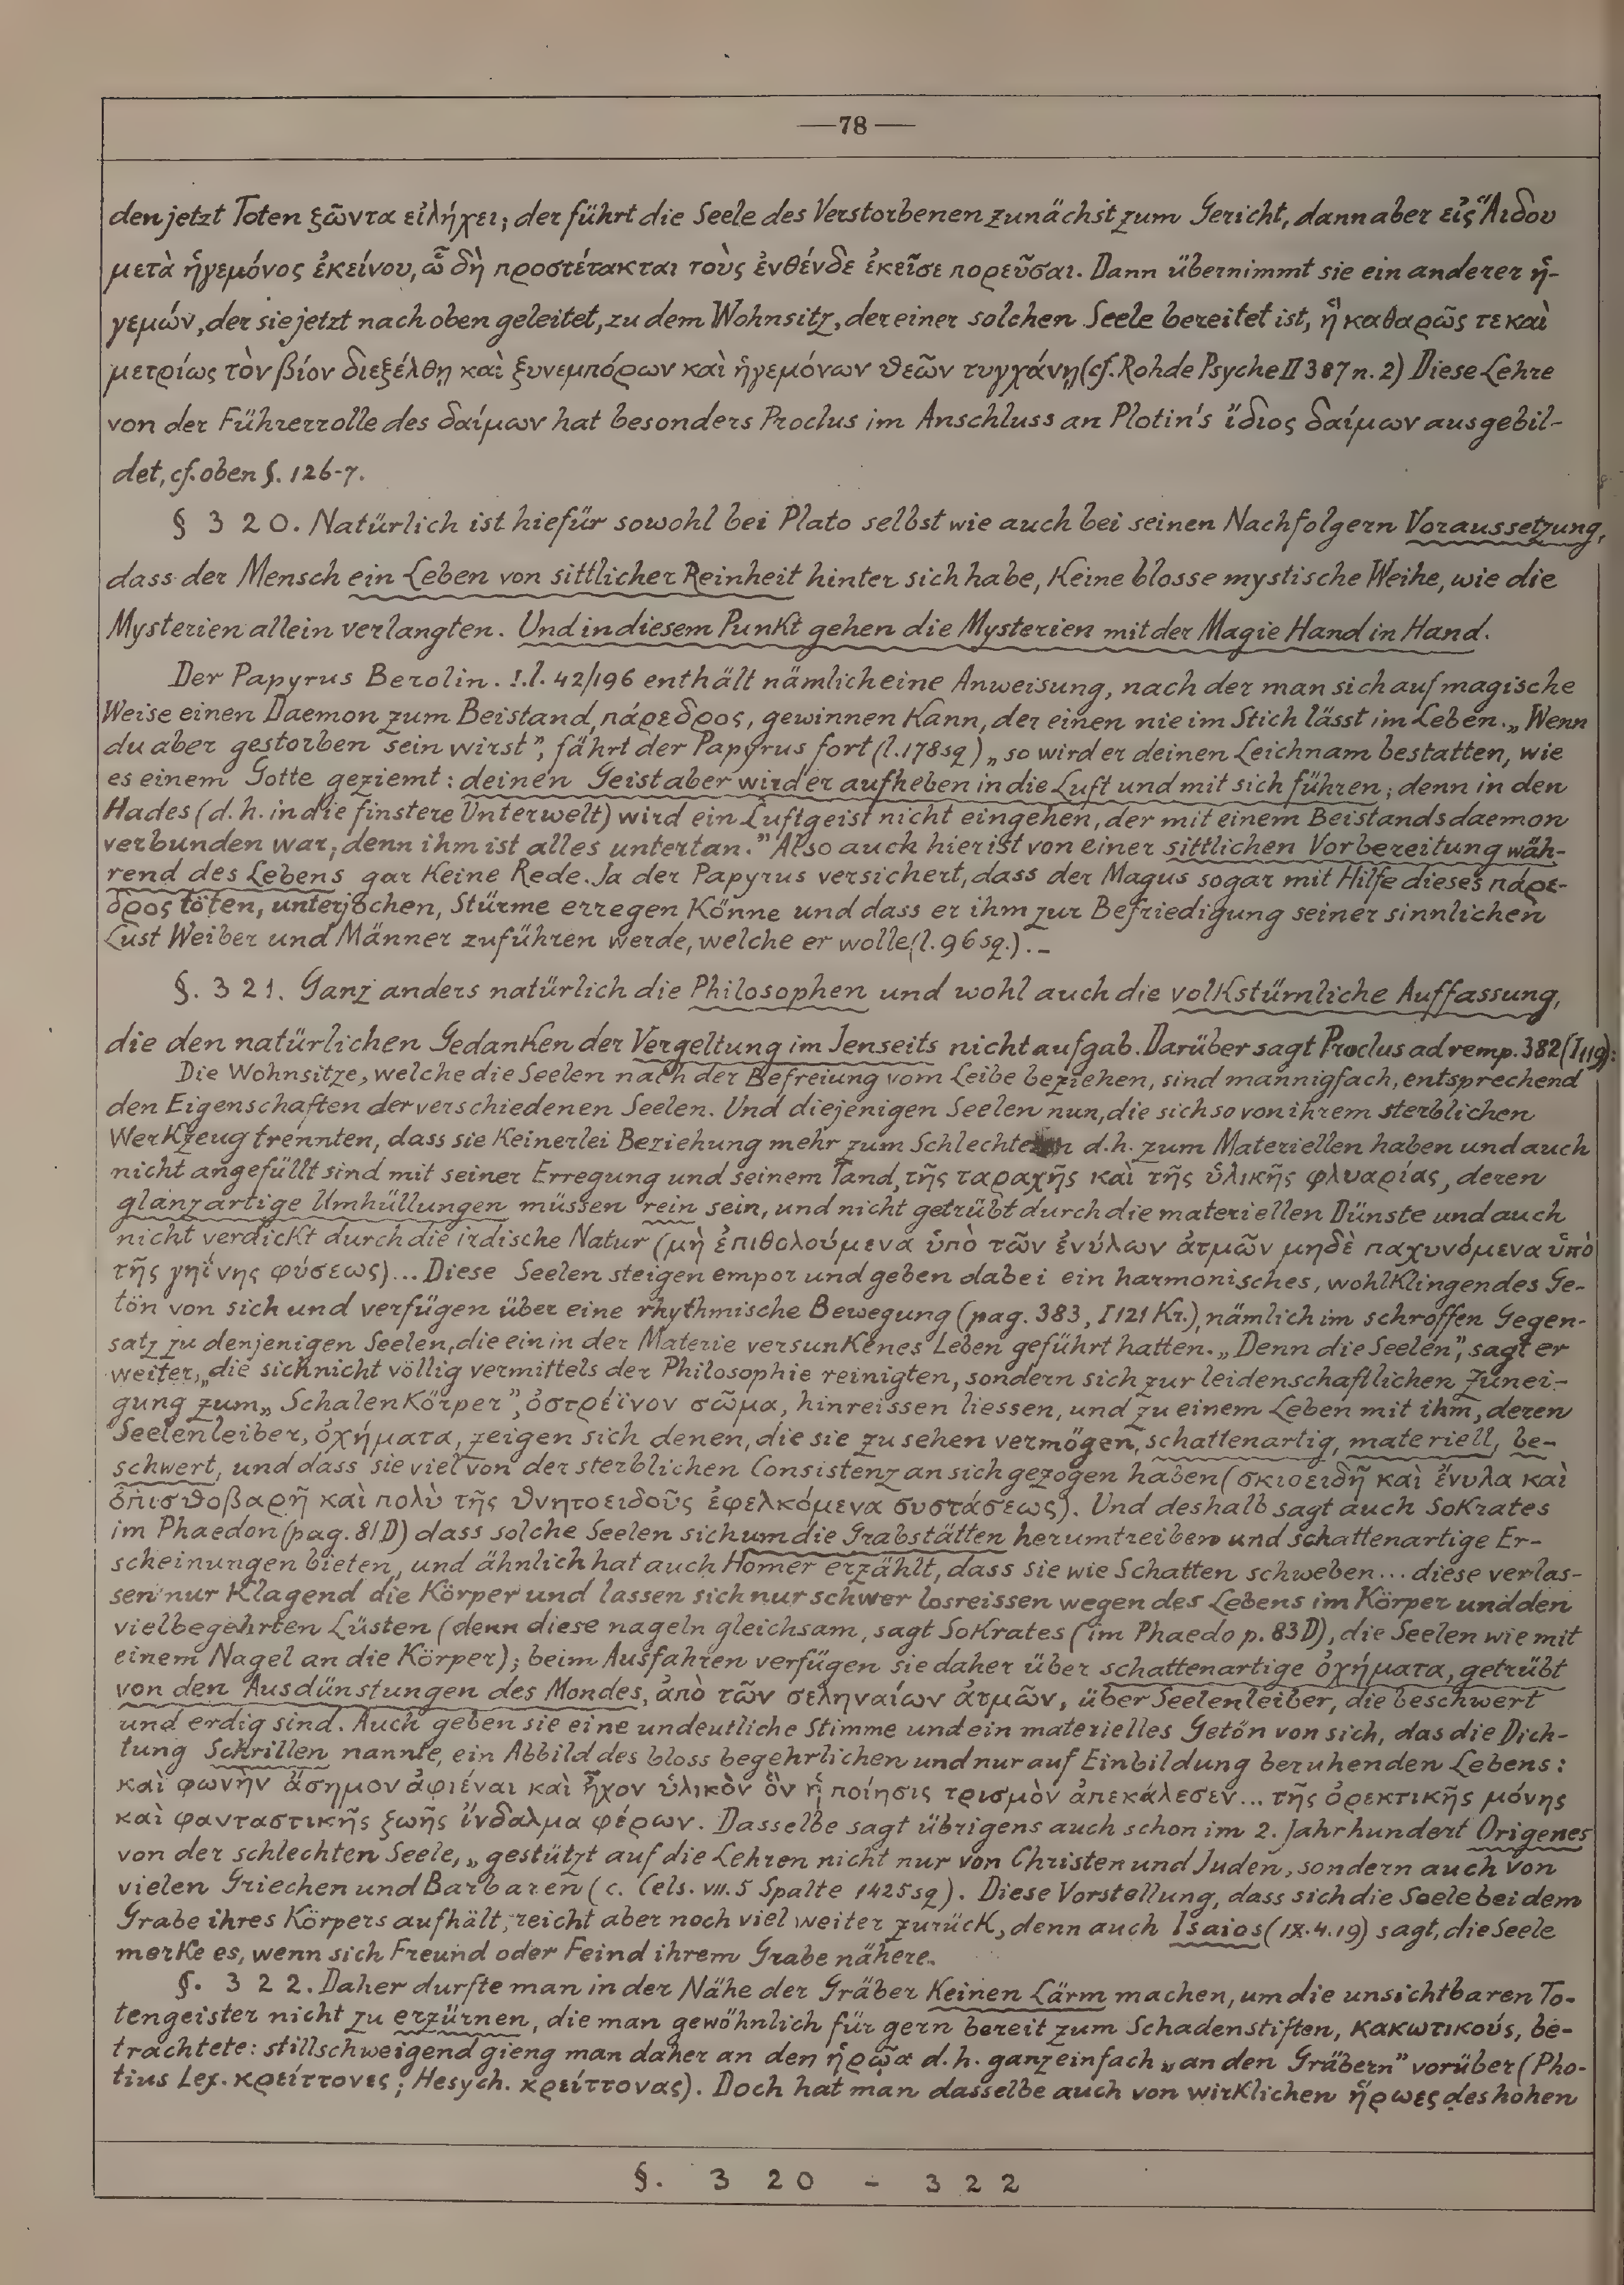 —78—
den jetzt Toten ξῶντα εἰλήχει; der führt die Seele des Verstorbenen zunächst zum Gericht, dann aber εἰς Ἅιδου
μετὰ ἡγεμόνος ἐκείνου, ᾧ δὴ προστέτακται τοὺς ἐνθένδε ἐκεῖσε πορεῦσαι. Dann übernimmt sie ein anderer ἡ-
γεμών, der sie jetzt nach oben geleitet, zu dem Wohnsitz, der einer solchen Seele bereitet ist, ἣ καθαρῶς τε καὶ
μετρίως τὸν βίον διεξέλθῃ καὶ ξυνεμπόρων καὶ ἡγεμόνων θεῶν τυγχάνῃ (cf. Rohde Psyche II 387 n. 2) Diese Lehre
von der Führerrolle des δαίμων hat besonders Proclus im Anschluss an Plotin's ἴδιος δαίμων ausgebil-
det, cf. oben §. 126-7.
§ 320. Natürlich ist hiefür sowohl bei Plato selbst wie auch bei seinen Nachfolgern Voraussetzung,
dass der Mensch ein Leben von sittlicher Reinheit hinter sich habe, keine blosse mystische Weihe, wie die
Mysterien allein verlangten. Und in diesem Punkt gehen die Mysterien mit der Magie Hand in Hand.
Der Papyrus Berolin. I. l. 42/196 enthält nämlich eine Anweisung, nach der man sich auf magische
Weise einen Daemon zum Beistand, πάρεδρος, gewinnen kann, der einen nie im Stich lässt im Leben. „Wenn
du aber gestorben sein wirst”, fährt der Papyrus fort (l. 178 sq) „so wird er deinen Leichnam bestatten, wie
es einem Gotte geziemt: deinen Geist aber wird er aufheben in die Luft und mit sich führen; denn in den
Hades (d. h. in die finstere Unterwelt) wird ein Luftgeist nicht eingehen, der mit einem Beistandsdaemon
verbunden war; denn ihm ist alles untertan.” Also auch hier ist von einer sittlichen Vorbereitung wäh-
rend des Lebens gar keine Rede. Ja der Papyrus versichert, dass der Magus sogar mit Hilfe dieses πάρε-
δρος töten, unterjochen, Stürme erregen könne und dass er ihm zur Befriedigung seiner sinnlichen
Lust Weiber und Männer zuführen werde, welche er wolle (l. 96 sq.). –
§. 321. Ganz anders natürlich die Philosophen und wohl auch die volkstümliche Auffassung,
die den natürlichen Gedanken der Vergeltung im Jenseits nicht aufgab. Darüber sagt Proclus ad remp. 382 (I 119):
Die Wohnsitze, welche die Seelen nach der Befreiung vom Leibe beziehen, sind mannigfach, entsprechend
den Eigenschaften der verschiedenen Seelen. Und diejenigen Seelen nun, die sich so von ihrem sterblichen
Werkzeug trennten, dass sie keinerlei Beziehung mehr zum Schlechten d. h. zum Materiellen haben und auch
nicht angefüllt sind mit seiner Erregung und seinem Tand, τῆς ταραχῆς καὶ τῆς ὑλικῆς φλυαρίας, deren
glanzartige Umhüllungen müssen rein sein, und nicht getrübt durch die materiellen Dünste und auch
nicht verdickt durch die irdische Natur (μὴ ἐπιθολούμενα ὑπὸ τῶν ἐνύλων ἀτμῶν μηδὲ παχυνόμενα ὑπὸ
τῆς γηΐνης φύσεως)... Diese Seelen steigen empor und geben dabei ein harmonisches, wohlklingendes Ge-
tön von sich und verfügen über eine rhythmische Bewegung (pag. 383, I 121 Kr.), nämlich im schroffen Gegen-
satz zu denjenigen Seelen, die ein in der Materie versunkenes Leben geführt hatten. „Denn die Seelen”, sagt er
weiter, „die sich nicht völlig vermittels der Philosophie reinigten, sondern sich zur leidenschaftlichen Zunei-
gung zum „Schalenkörper”, ὀστρέϊνον σῶμα, hinreissen liessen, und zu einem Leben mit ihm, deren
Seelenleiber, ὀχήματα, zeigen sich denen, die sie zu sehen vermögen, schattenartig, materiell, be-
schwert, und dass sie viel von der sterblichen Consistenz an sich gezogen haben (σκιοειδῆ καὶ ἔνυλα καὶ
ὀπισθοβαρῆ καὶ πολὺ τῆς θνητοειδοῦς ἐφελκόμενα συστάσεως). Und deshalb sagt auch Sokrates
im Phaedon (pag. 81 D) dass solche Seelen sich um die Grabstätten herumtreiben und schattenartige Er-
scheinungen bieten, und ähnlich hat auch Homer erzählt, dass sie wie Schatten schweben... diese verlas-
sen nur klagend die Körper und lassen sich nur schwer losreissen wegen des Lebens im Körper und den
vielbegehrten Lüsten (denn diese nageln gleichsam, sagt Sokrates (im Phaedo p. 83 D), die Seelen wie mit
einem Nagel an die Körper); beim Ausfahren verfügen sie daher über schattenartige ὀχήματα, getrübt
von den Ausdünstungen des Mondes, ἀπὸ τῶν σεληναίων ἀτμῶν, über Seelenleiber, die beschwert
und erdig sind. Auch geben sie eine undeutliche Stimme und ein materielles Getön von sich, das die Dich-
tung Schrillen nannte, ein Abbild des bloss begehrlichen und nur auf Einbildung beruhenden Lebens:
καὶ φωνὴν ἄσημον ἀφιέναι καὶ ἦχον ὑλικὸν ὃν ἡ ποίησις τρισμὸν ἀπεκάλεσεν... τῆς ὀρεκτικῆς μόνης
καὶ φανταστικῆς ξωῆς ἴνδαλμα φέρων. Dasselbe sagt übrigens auch schon im 2. Jahrhundert Origenes
von der schlechten Seele, „gestützt auf die Lehren nicht nur von Christen und Juden, sondern auch von
vielen Griechen und Barbaren (c. Cels. VII. 5 Spalte 1425 sq). Diese Vorstellung, dass sich die Seele bei dem
Grabe ihres Körpers aufhält, reicht aber noch viel weiter zurück, denn auch Isaios (IX. 4. 19) sagt, die Seele
merke es, wenn sich Freund oder Feind ihrem Grabe nähere.
§. 322. Daher durfte man in der Nähe der Gräber keinen Lärm machen, um die unsichtbaren To-
tengeister nicht zu erzürnen, die man gewöhnlich für gern bereit zum Schadenstiften, κακωτικούς, be-
trachtete: stillschweigend gieng man daher an den ἡρῷα d. h. ganz einfach „an den Gräbern” vorüber (Pho-
tius Lex. κρείττονες; Hesych. κρείττονας). Doch hat man dasselbe auch von wirklichen ἥρωες des hohen
§. 320 - 322